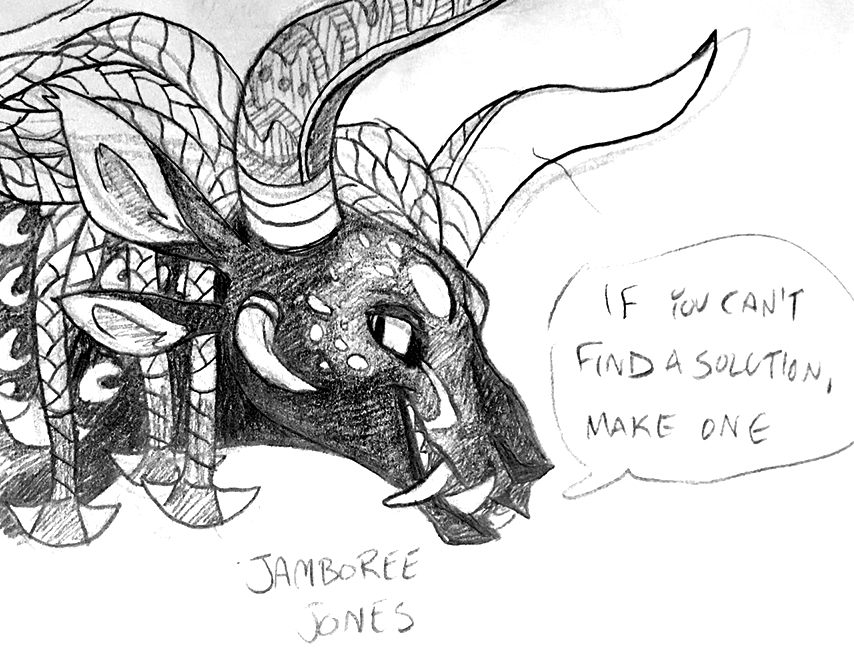 IF YOU CAN'T
FIND A SOLUTION,
MAKE ONE
JAMBOREE
JONES